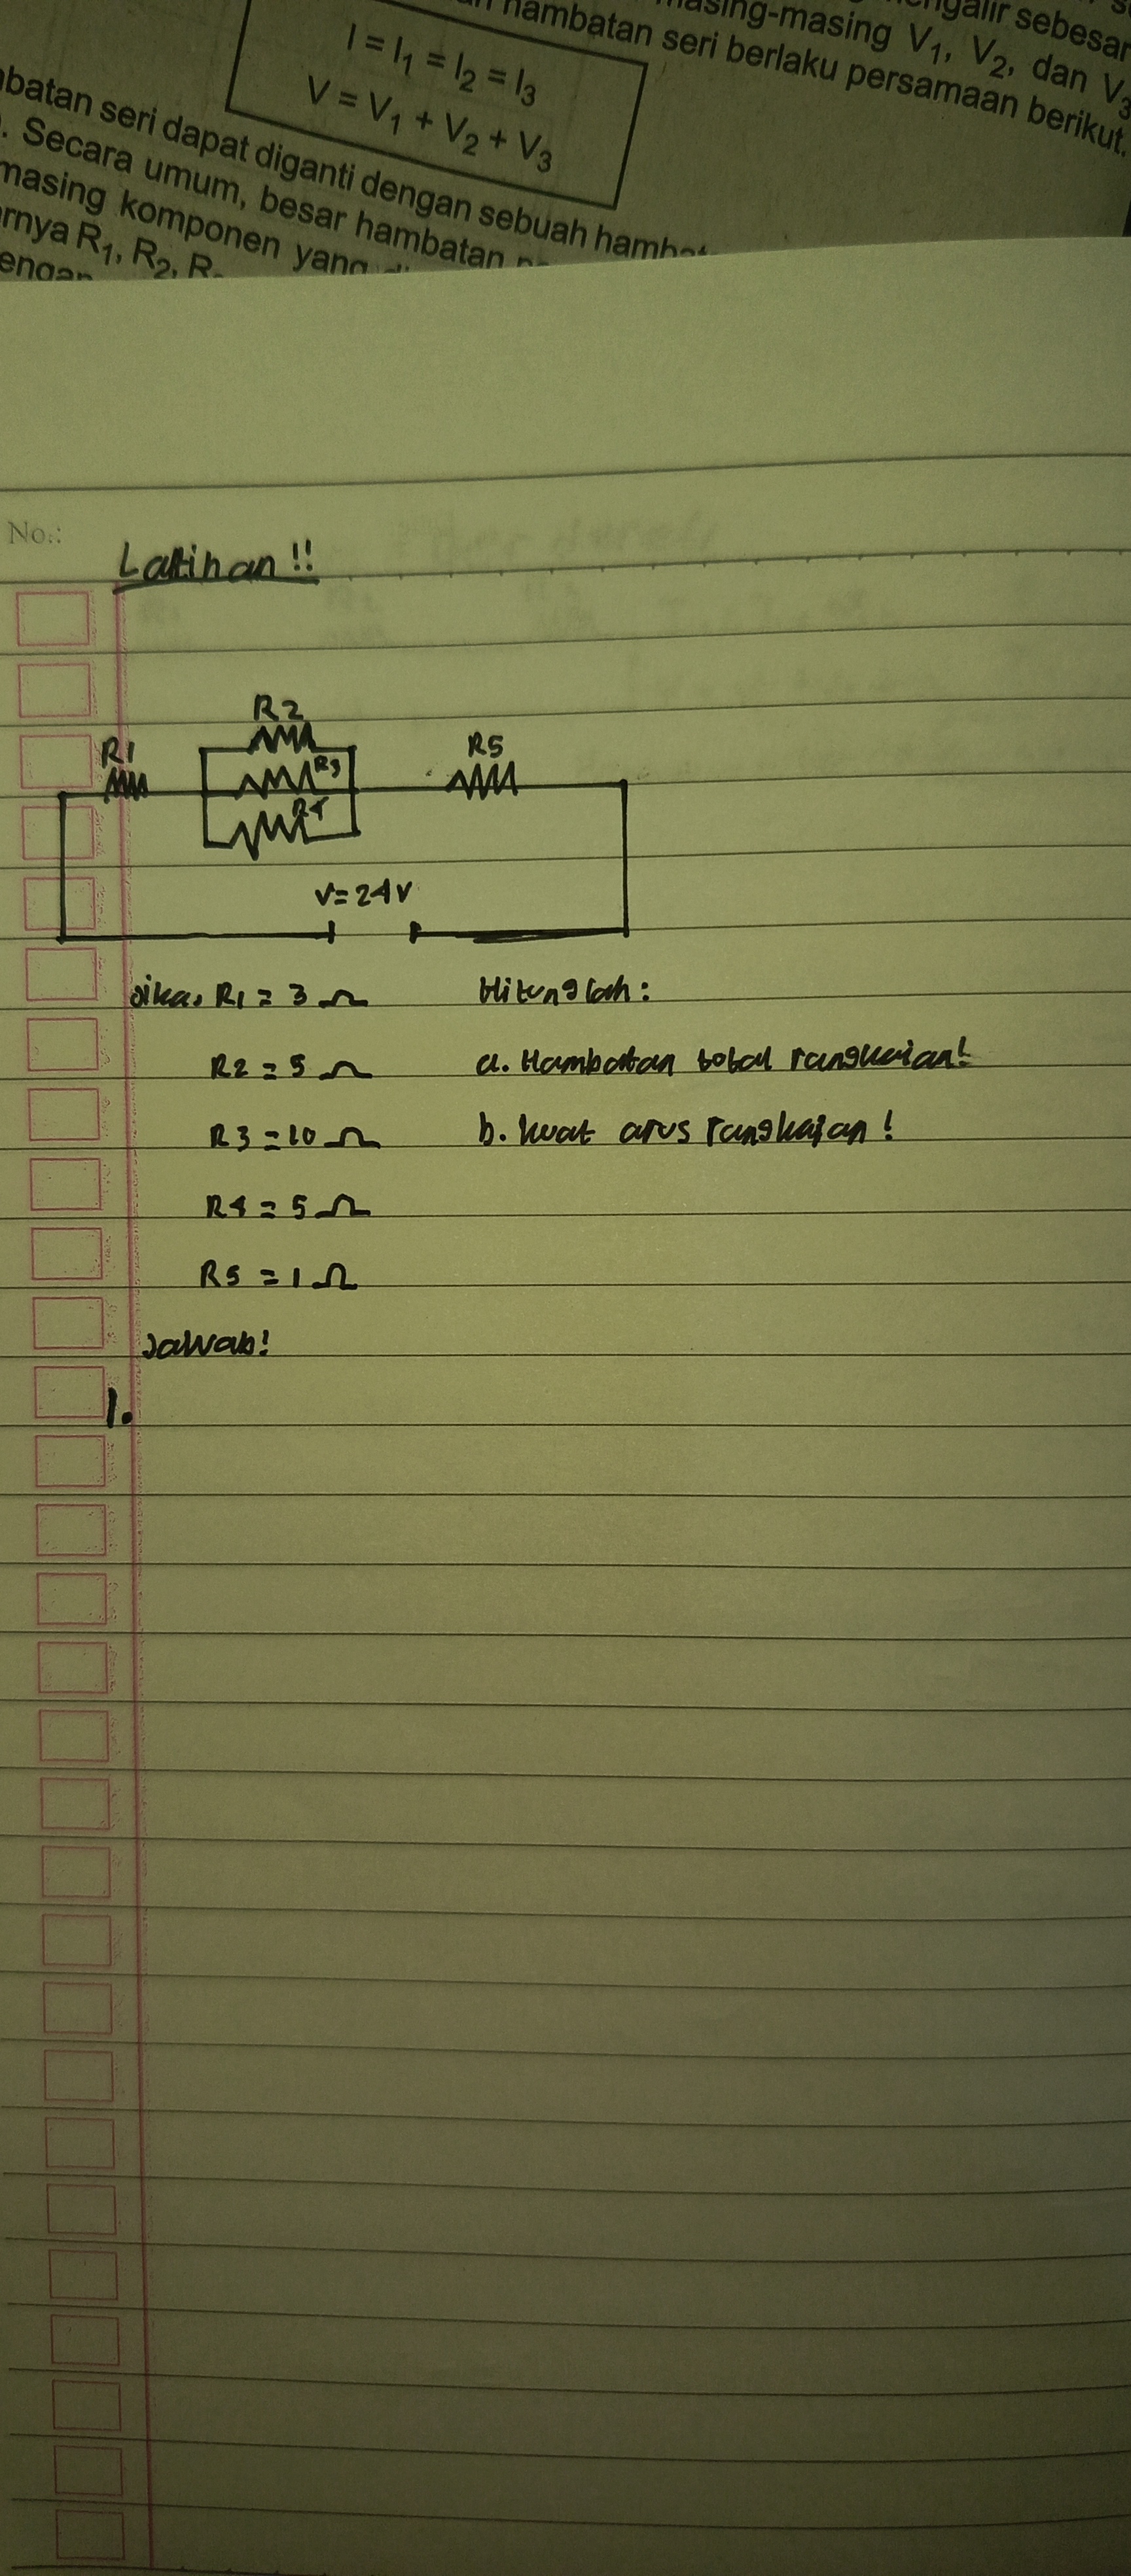 engalir sebesar
masing-masing V1, V2, dan V3
hambatan seri berlaku persamaan berikut.
I = I1 = I2 = I3
V = V1 + V2 + V3
batan seri dapat diganti dengan sebuah hambat
. Secara umum, besar hambatan
masing komponen yang
rnya R1, R2, R
engan
No.:
Latihan !!
R2
R1
R3
R5
R4
V=24V
Jika, R1 = 3 Ω
Hitunglah:
R2 = 5 Ω
a. Hambatan total rangkaian!
R3 = 10 Ω
b. kuat arus rangkaian!
R4 = 5 Ω
R5 = 1 Ω
Jawab!
1.